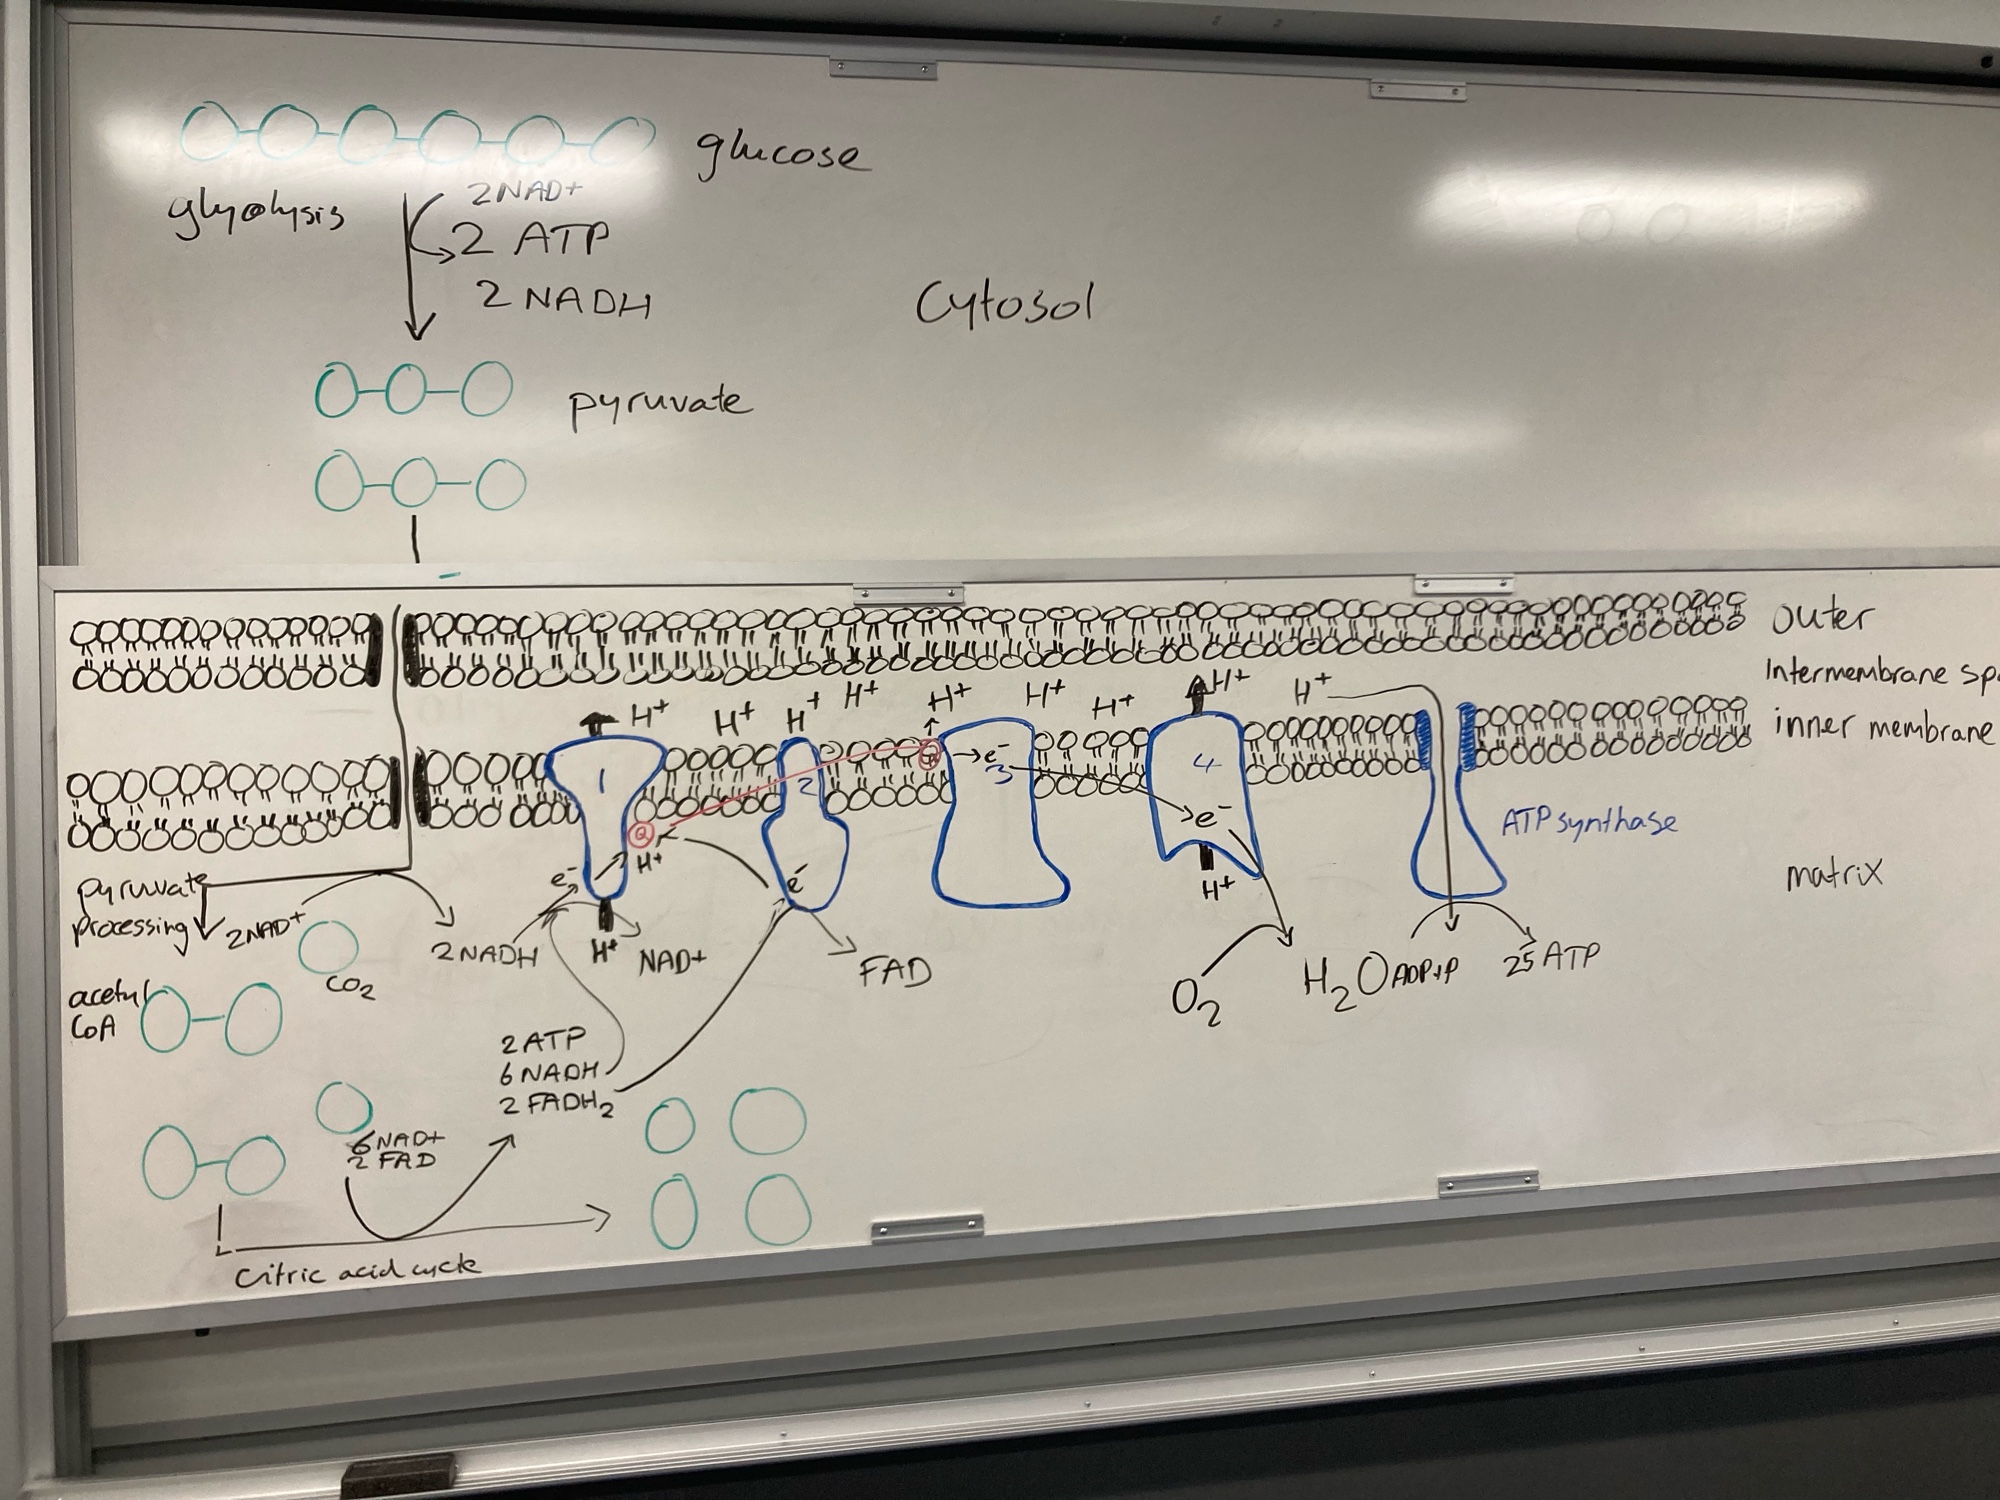 glucose
glycolysis
2NAD+
2 ATP
2 NADH
Cytosol
pyruvate
outer
Intermembrane sp
inner membrane
matrix
H+
H+
H+
H+
H+
H+
H+
H+
H+
1
2
3
4
Q
Q
e-
e-
e-
e-
H+
H+
H+
ATP synthase
pyruvate
processing
2NAD+
CO2
2NADH
NAD+
FAD
O2
H2O
ADP+P
25 ATP
acetyl
CoA
2 ATP
6 NADH
2 FADH2
6 NAD+
2 FAD
Citric acid cycle